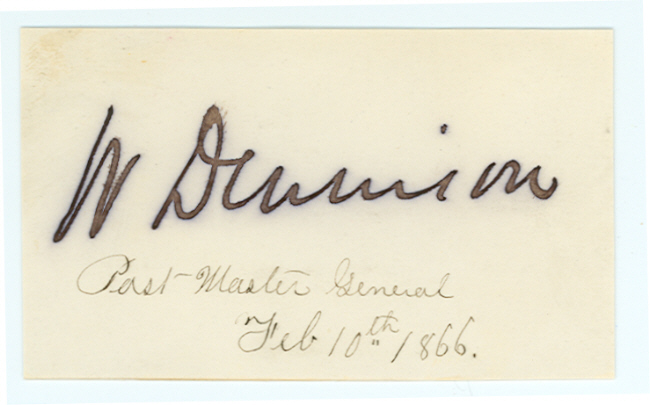 W Dennison
Post Master General
Feb 10th 1866.